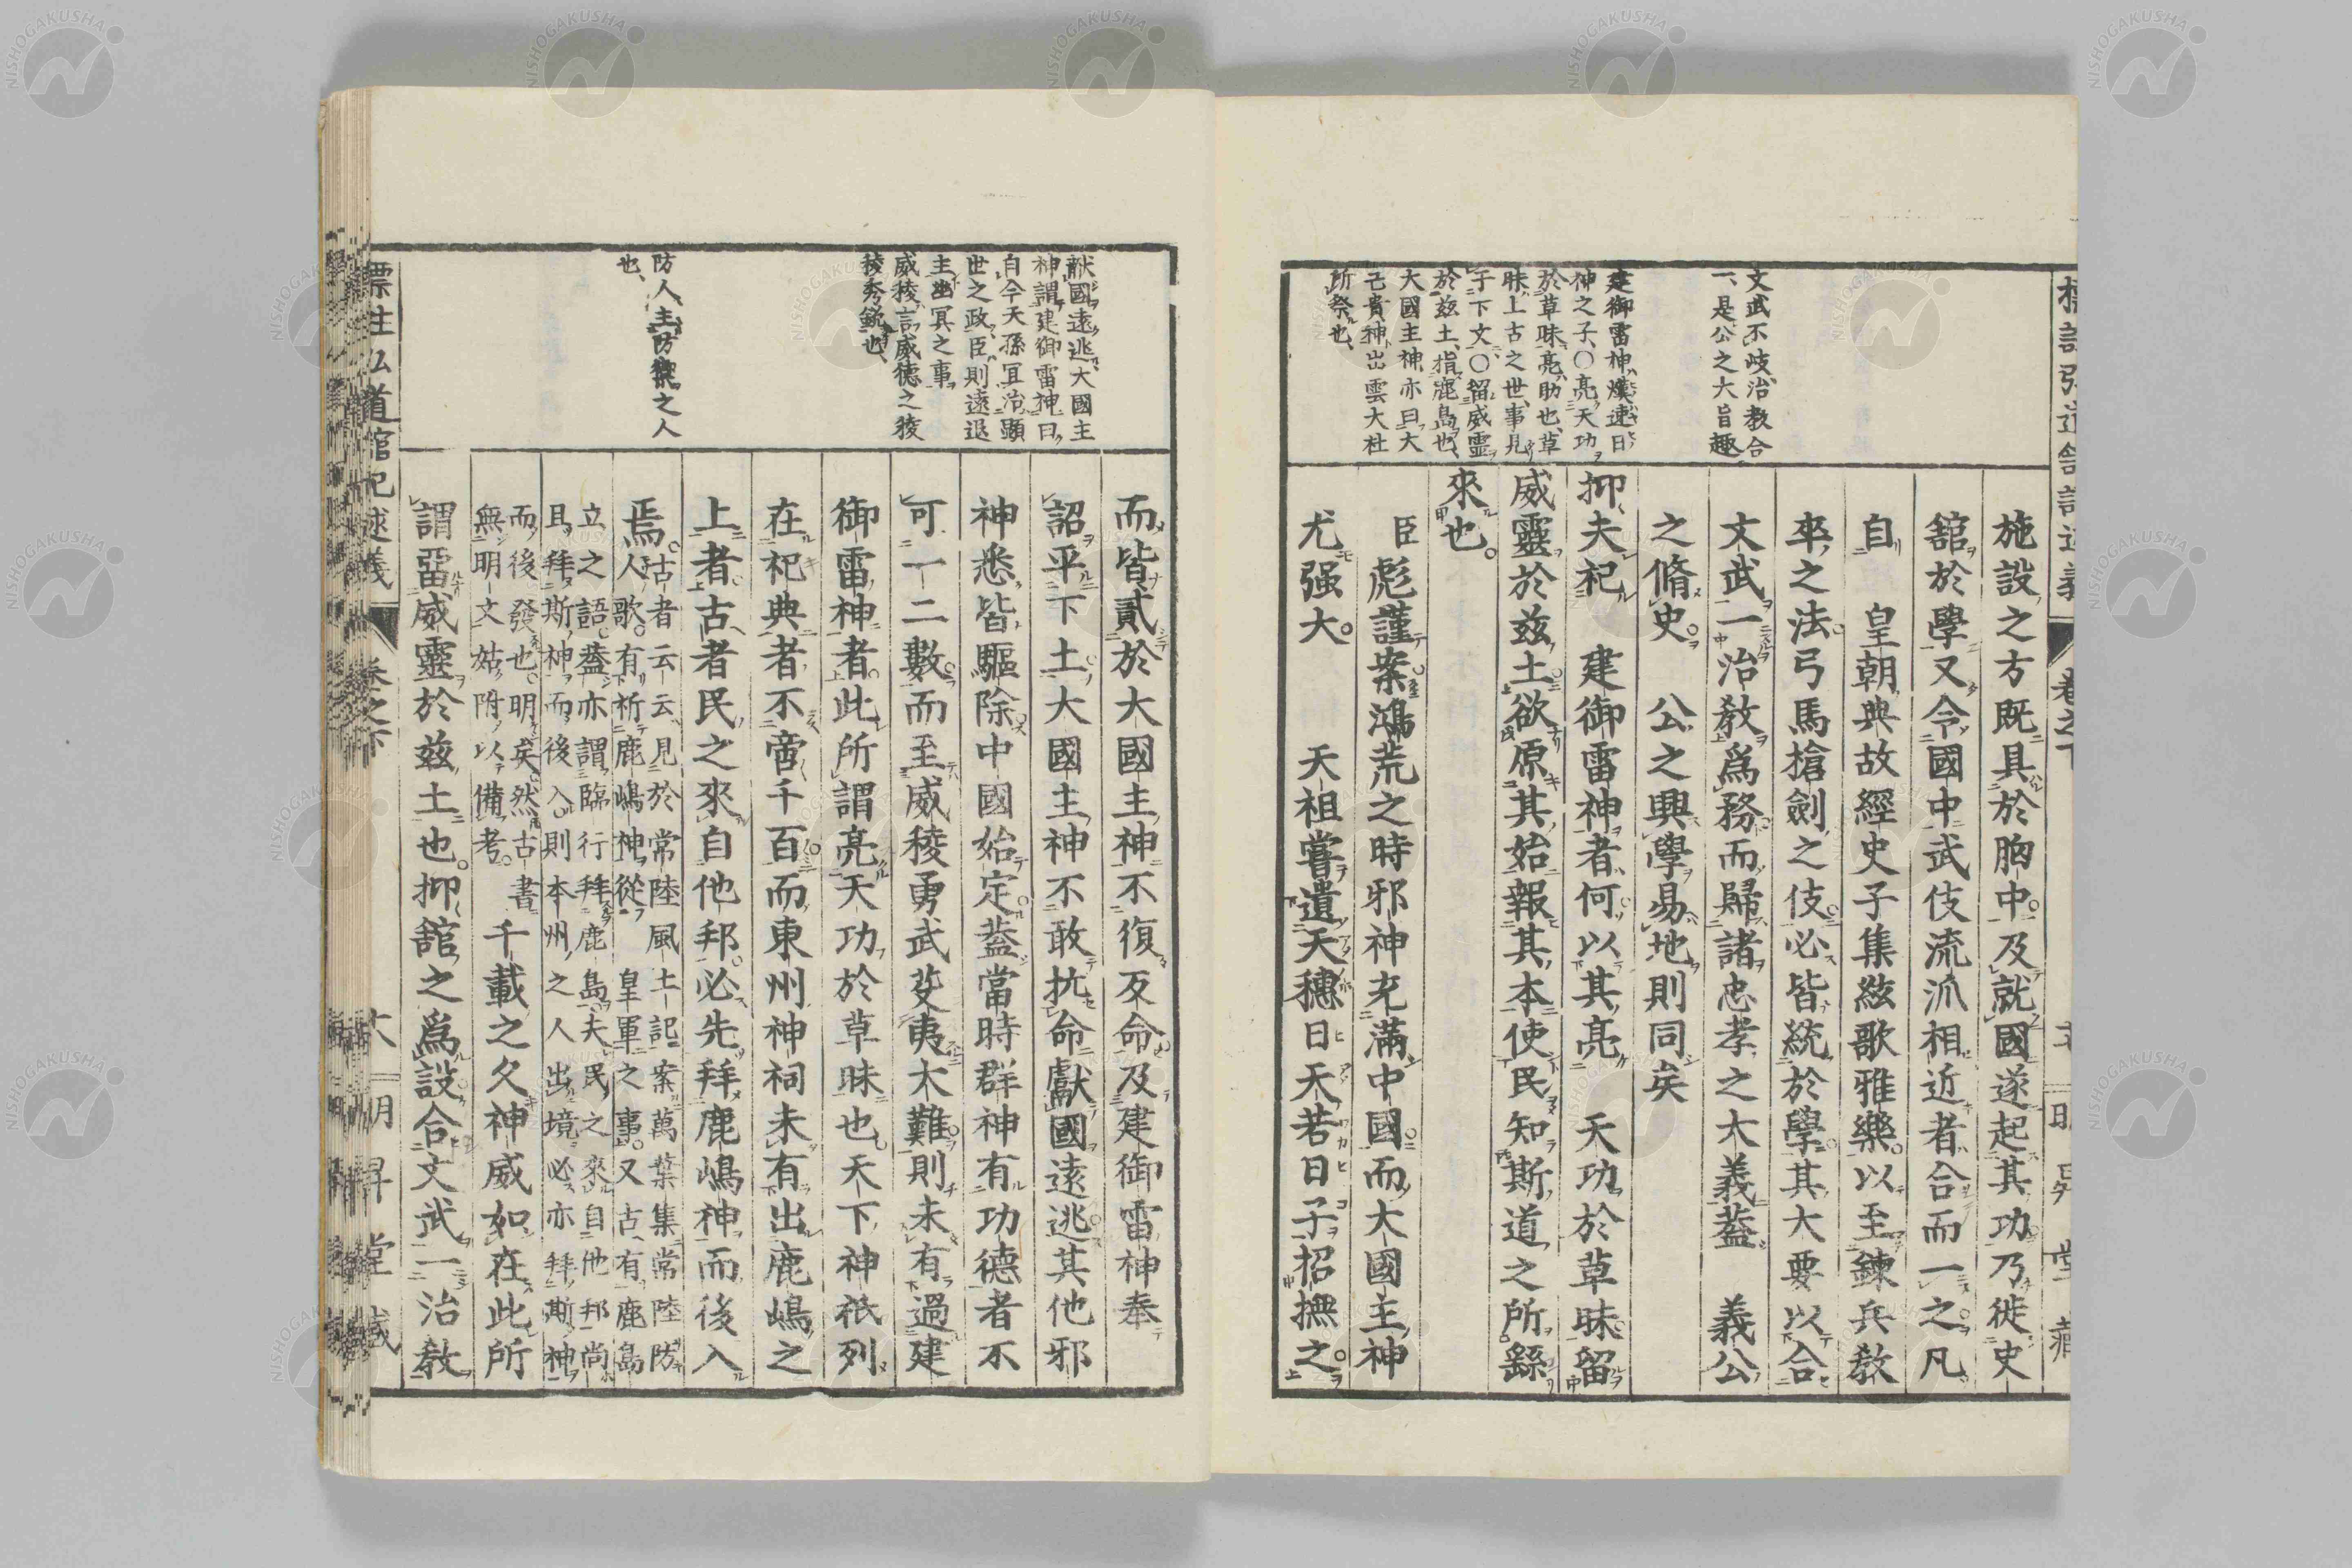 文武不岐、治教合
一、是公之大旨趣
建御雷神、熯速日
神之子、〇亮天功
於草昧、亮、助也、草
昧、上古之世、事見
于下文〇留威靈
於茲土、指鹿島也、
大國主神、亦曰大
己貴神、出雲大社
所祭也、
施設之方既具於胸中及就國遂起其功乃徙史
舘於學又令國中武伎流派相近者合而一之凡
自　皇朝典故經史子集絃歌雅樂以至鍊兵教
卒之法弓馬槍劍之伎必皆統於學其大要以合
文武一治教爲務而歸諸忠孝之大義蓋　義公
之脩史　公之興學易地則同矣
抑夫祀　建御雷神者何以其亮　天功於草昧留
威靈於茲土欲原其始報其本使民知斯道之所繇
來也。
臣彪謹案鴻荒之時邪神充滿中國而大國主神
尤强大。　天祖嘗遣天穗日天若日子招撫之
獻國遠逃、大國主
神謂建御雷神曰、
自今天孫冝治顯
世之政、臣則遠退
主幽冥之事
威稜、言威德之稜
稜秀銳也、
防人、主防禦之人
也、
而皆貳於大國主神不復反命及建御雷神奉
詔平下土大國主神不敢抗命獻國遠逃其他邪
神悉皆驅除中國始定蓋當時群神有功德者不
可一二數而至威稜勇武芟夷大難則未有過建
御雷神者此所謂亮天功於草昧也天下神祇列
在祀典者不啻千百而東州神祠未有出鹿嶋之
上者古者民之來自他邦必先拜鹿嶋神而後入
焉。古者云云見於常陸風土記案萬葉集常陸防
人歌。有祈鹿嶋神從　皇軍之事。又古有鹿島
立之語。蓋亦謂臨行拜鹿島夫民之來自他邦尚
且拜斯神而後入則本州之人出境必亦拜斯神
而後發也明矣然古書
無明文姑附以備考。　千載之久神威如在此所
謂畱威靈於茲土也。抑舘之爲設合文武一治教
標註弘道館記述義　卷之下　明昇堂藏